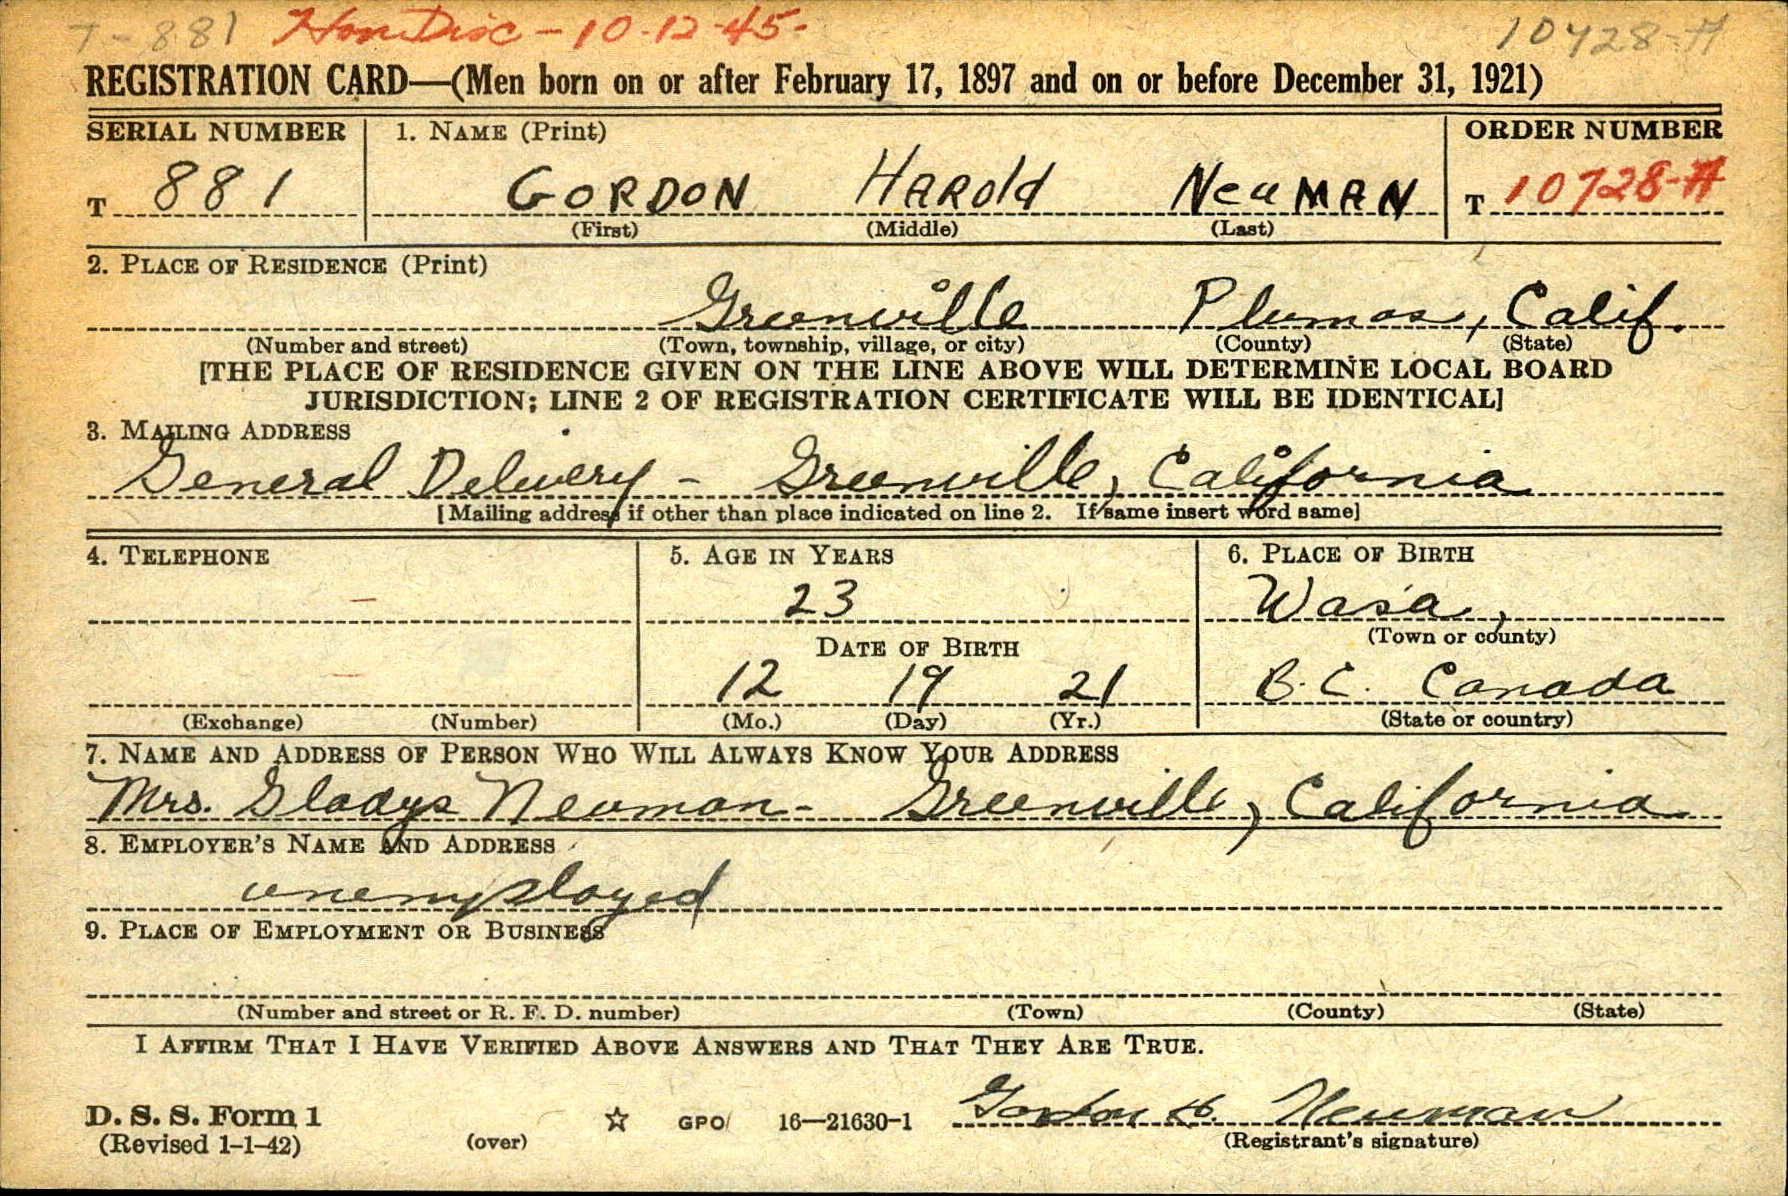 T-881 Hon Disc - 10-12-45- 10728-A
REGISTRATION CARD—(Men born on or after February 17, 1897 and on or before December 31, 1921)
SERIAL NUMBER 1. NAME (Print) ORDER NUMBER
T 881 GORDON HAROLD NeuMAN T 10728-A
(First) (Middle) (Last)
2. PLACE OF RESIDENCE (Print)
Greenville Plumas, Calif.
(Number and street) (Town, township, village, or city) (County) (State)
[THE PLACE OF RESIDENCE GIVEN ON THE LINE ABOVE WILL DETERMINE LOCAL BOARD
JURISDICTION; LINE 2 OF REGISTRATION CERTIFICATE WILL BE IDENTICAL]
3. MAILING ADDRESS
General Delivery - Greenville, California
[Mailing address if other than place indicated on line 2. If same insert word same]
4. TELEPHONE 5. AGE IN YEARS 6. PLACE OF BIRTH
– 23 Wasa,
(Town or county)
DATE OF BIRTH
– 12 19 21 B.C. Canada
(Exchange) (Number) (Mo.) (Day) (Yr.) (State or country)
7. NAME AND ADDRESS OF PERSON WHO WILL ALWAYS KNOW YOUR ADDRESS
Mrs. Gladys Neuman - Greenville, California
8. EMPLOYER'S NAME AND ADDRESS
unemployed
9. PLACE OF EMPLOYMENT OR BUSINESS
(Number and street or R. F. D. number) (Town) (County) (State)
I AFFIRM THAT I HAVE VERIFIED ABOVE ANSWERS AND THAT THEY ARE TRUE.
D. S. S. Form 1 ☆ GPO 16—21630-1 Gordon H. Neuman
(Revised 1-1-42) (over) (Registrant's signature)